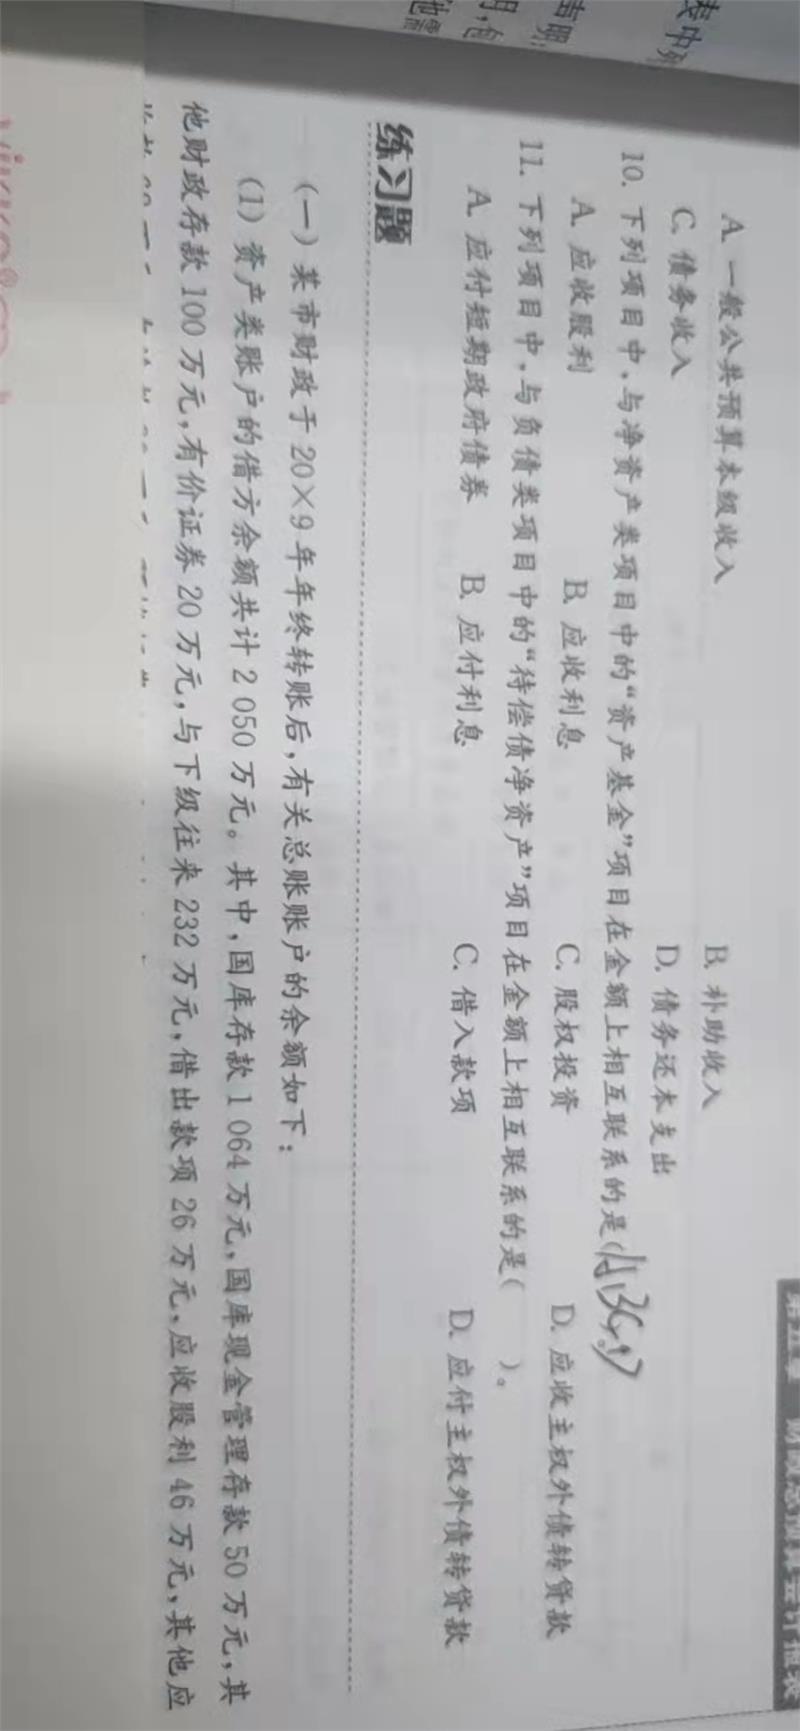 A. 一般公共预算本级收入 B. 补助收入
C. 债务收入 D. 债务还本支出
10. 下列项目中,与净资产类项目中的“资产基金”项目在金额上相互联系的是(
A. 应收股利 B. 应收利息 C. 股权投资 D. 应收主权外债转贷款
11. 下列项目中,与负债类项目中的“待偿债净资产”项目在金额上相互联系的是( )。
A. 应付短期政府债券 B. 应付利息 C. 借入款项 D. 应付主权外债转贷款
练习题
(一)某市财政于20×9年年终转账后,有关总账账户的余额如下:
(1)资产类账户的借方余额共计2 050万元。其中,国库存款1 064万元,国库现金管理存款50万元,其
他财政存款100万元,有价证券20万元,与下级往来232万元,借出款项26万元,应收股利46万元,其他应